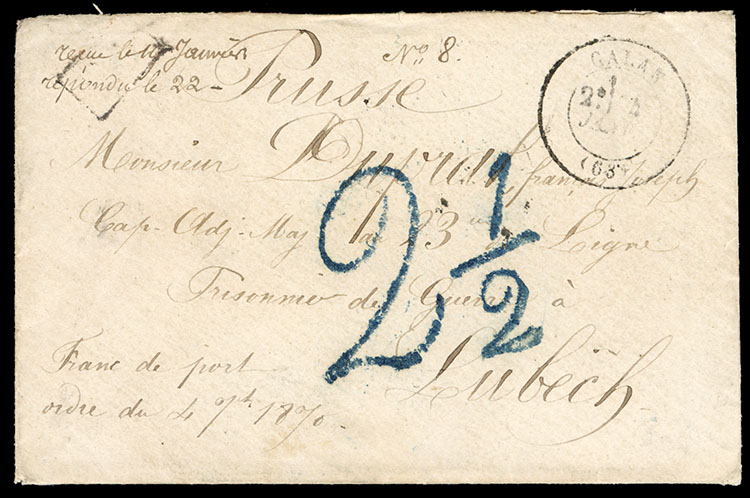 reçue le 19 Janvier
répondu le 22 -
No 8.
GALAN
2E
JANV
(63)
Prusse
Monsieur Dupruh, françois Joseph
Cap- Adj- Maj au 23 de Ligne
Prisonnier de Guerre à
Lubëch
Franc de port
ordre du 4 7bre 1870.
2 1/2